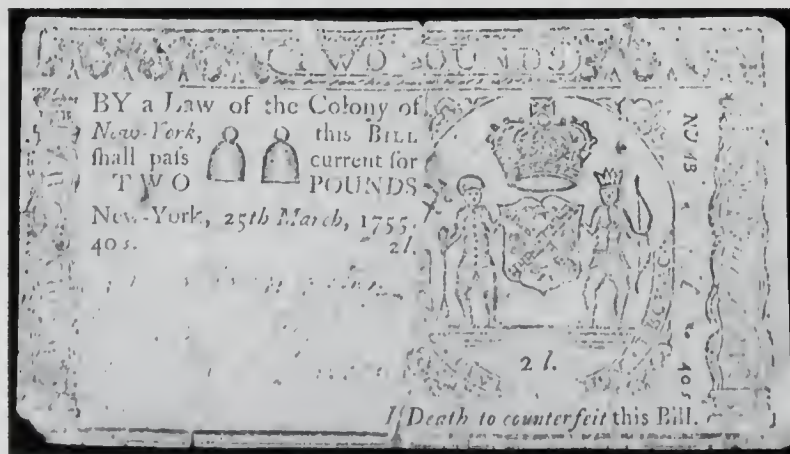 TWO POUNDS
BY a Law of the Colony of
New-York, this BILL
ſhall paſs current for
TWO POUNDS
New-York, 25th March, 1755.
40 s. 2 l.
2 l.
'Tis Death to counterfeit this Bill.
40s